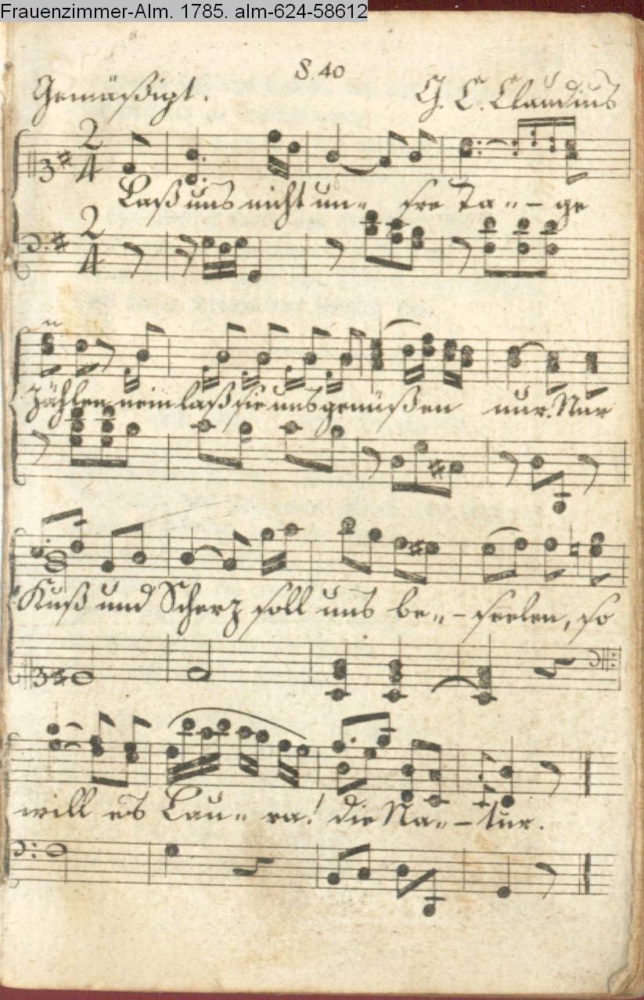 Frauenzimmer-Alm. 1785. alm-624-58612
S. 40
Gemäßigt. G. C. Claudius
2 4
Laß uns nicht un- sre Ta-- - ge
2 4
Zählen, nein laß sie uns genüßen nur. Nur
Kuß und Scherz soll uns be-- - seelen, so
will es Lau-- ra! die Na-- - tur.